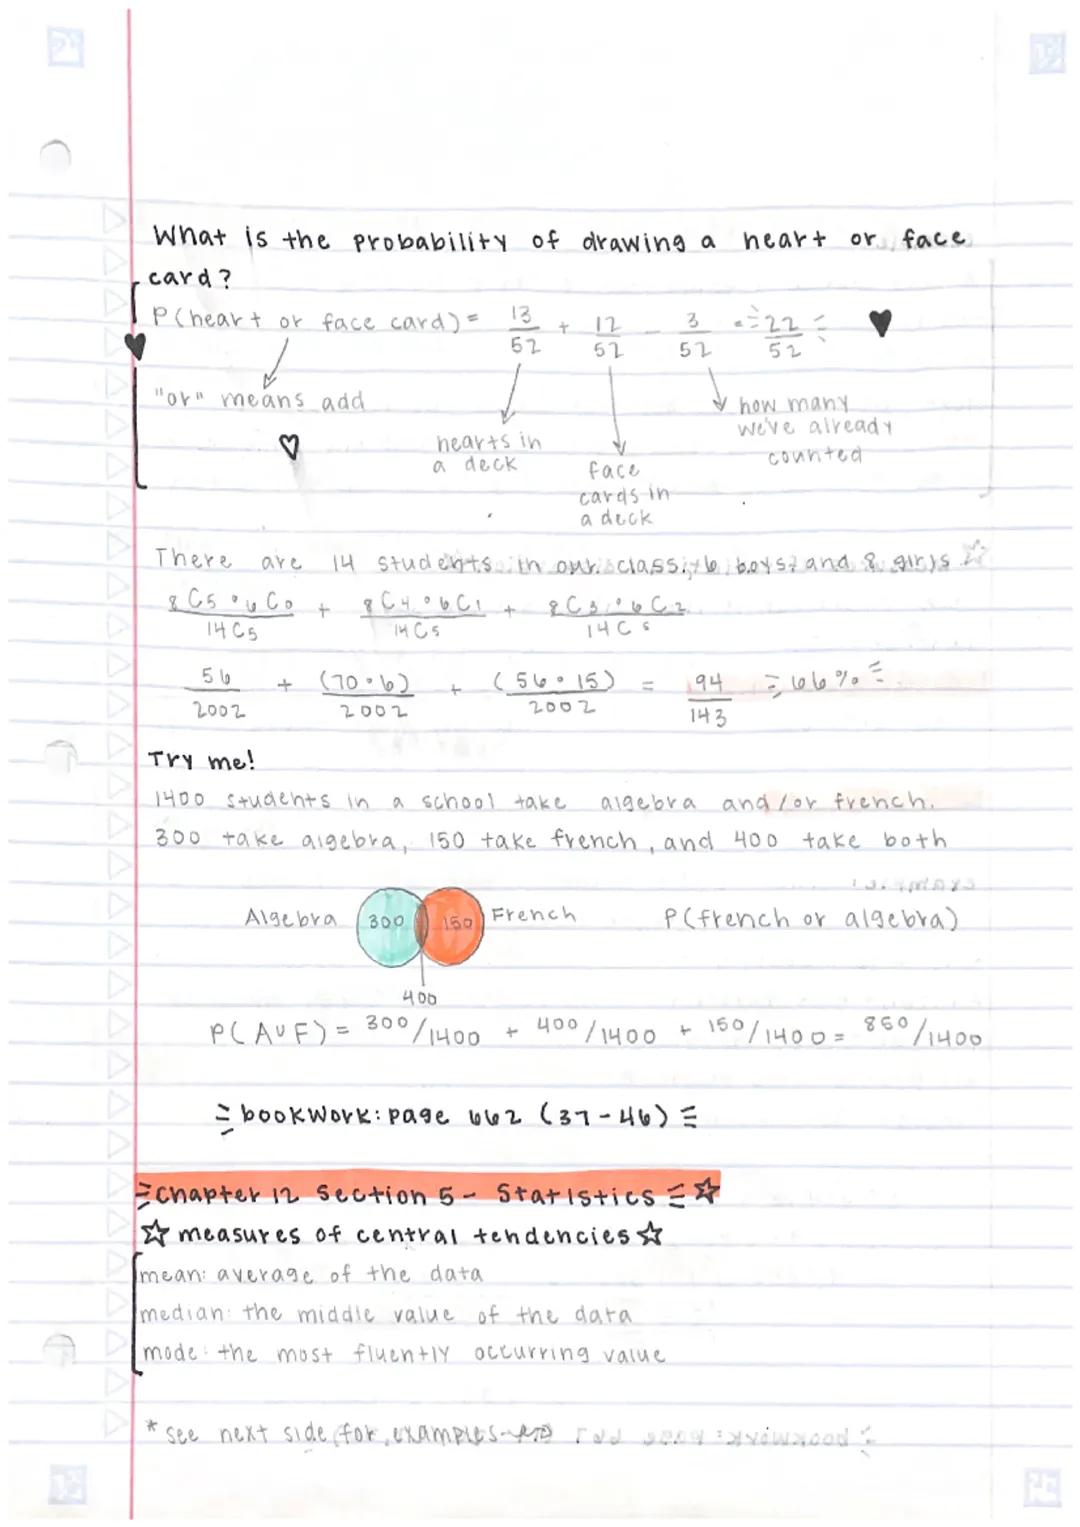 What is the probability of drawing a heart or face
card?
P(heart or face card) = 13/52 + 12/52 - 3/52 = 22/52
"or" means add
hearts in
a deck
face
cards in
a deck
how many
we've already
counted
There are 14 students in our class, 6 boys, and 8 girls
8C5 • 6C0 / 14C5 + 8C4 • 6C1 / 14C5 + 8C3 • 6C2 / 14C5
56/2002 + (70 • 6)/2002 + (56 • 15)/2002 = 94/143 = 66%
Try me!
1400 students in a school take algebra and/or french.
300 take algebra, 150 take french, and 400 take both
Algebra 300 150 French P(french or algebra)
400
P(A∪F) = 300/1400 + 400/1400 + 150/1400 = 850/1400
bookwork: page 662 (37-46)
Chapter 12 Section 5 - Statistics
measures of central tendencies
mean: average of the data
median: the middle value of the data
mode: the most fluently occurring value
* see next side for examples